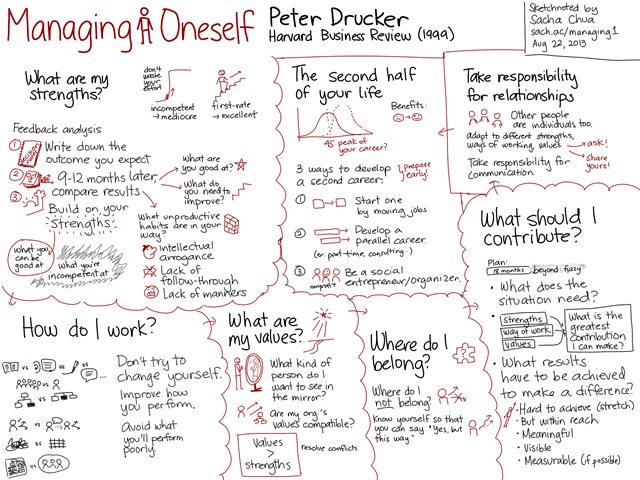 Managing Oneself
Peter Drucker
Harvard Business Review (1999)
Sketchnoted by
Sacha Chua
sach.ac/managing1
Aug 22, 2013
What are my
strengths?
don't
waste
your
effort
incompetent
→ mediocre
first-rate
→ excellent
Feedback analysis
1 Write down the
outcome you expect
2 9-12 months later,
compare results
3 Build on your
strengths
What are
you good at?
What do
you need to
improve?
What unproductive
habits are in your
way?
Intellectual
arrogance
Lack of
follow-through
Lack of manners
what you
can be
good at
what you're
incompetent at
How do I work?
vs vs vs
vs
vs vs
vs
vs
Don't try to
change yourself.
Improve how
you perform.
Avoid what
you'll perform
poorly.
What are
my values?
What kind of
person do I
want to see in
the mirror?
Are my org's
values compatible?
Values
>
strengths
resolve conflicts
Where do I
belong?
Where do I
not belong?
Know yourself so that
you can say "Yes, but
this way."
What should I
contribute?
Plan:
18 months beyond: fuzzy
• What does the
situation need?
strengths
way of work
values
What is the
greatest
contribution
I can make?
• What results
have to be achieved
to make a difference?
• Hard to achieve (stretch)
• But within reach
• Meaningful
• Visible
• Measurable (if possible)
Take responsibility
for relationships
Other people
are individuals too.
adapt to different strengths,
ways of working, values
→ ask!
Take responsibility for
communication.
→ share
yours!
The second half
of your life
Benefits:
45 peak of
your career?
3 ways to develop
a second career:
prepare
early!
1 Start one
by moving jobs
2 Develop a
parallel career.
(or part-time, consulting...)
3 Be a social
entrepreneur/organizer.
nonprofit